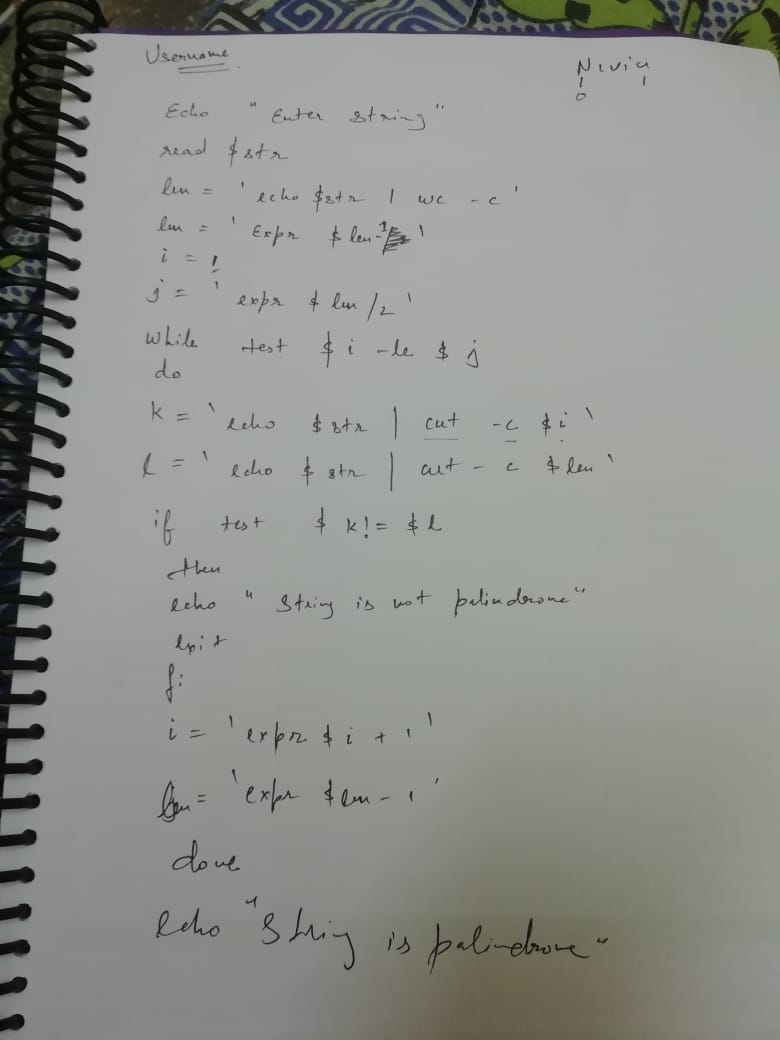 Username
Nivin
1 1
0
Echo "Enter string"
read $str
len = 'echo $str | wc -c'
len = 'Expr $len-1'
i = 1
j = 'expr $len/2'
while test $i -le $j
do
k = `echo $str | cut -c $i`
l = `echo $str | cut -c $len`
if test $k != $l
then
echo "String is not palindrome"
exit
fi
i = 'expr $i + 1'
len = 'expr $len - 1'
done
echo "String is palindrome"